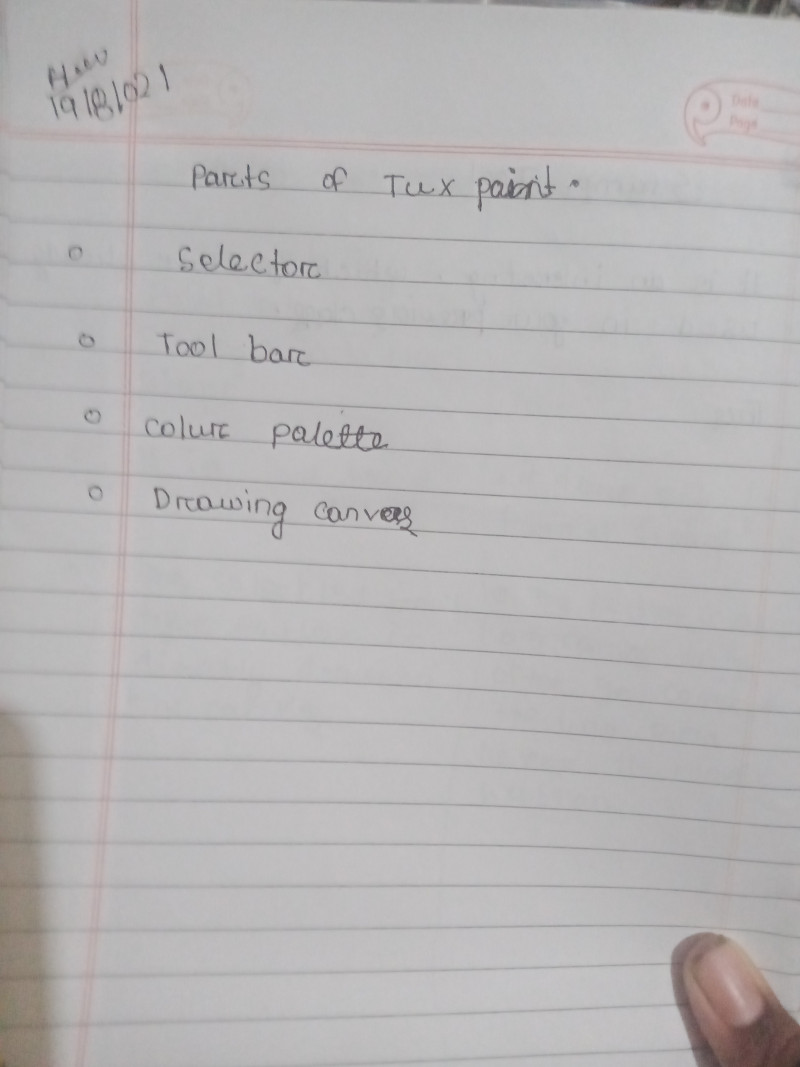 H.W
19/8/021
Date
Page
Parts of Tux paint.
o Selector
o Tool bar
o Colur palette
o Drawing canvas